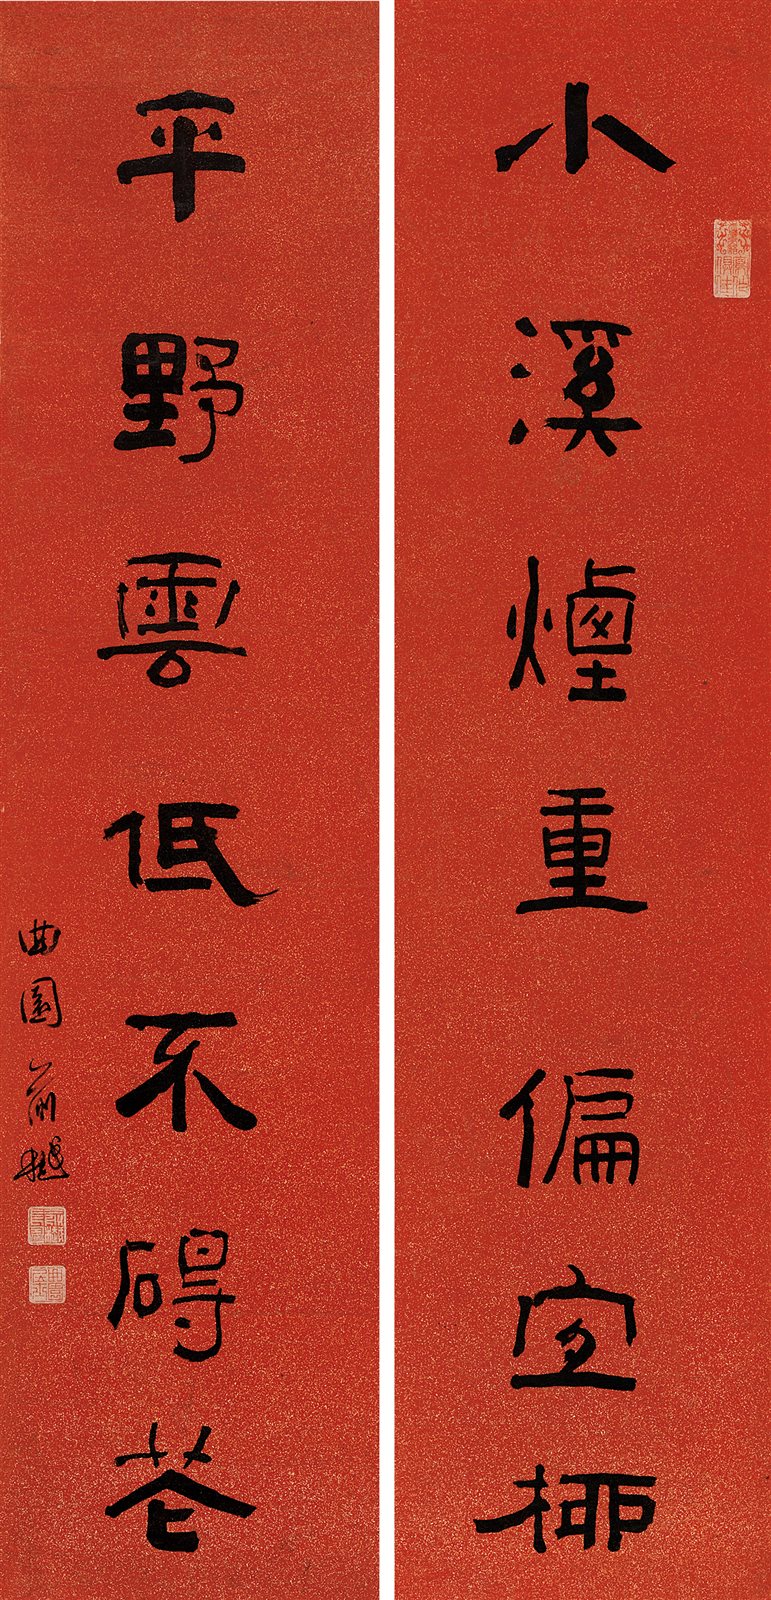 小溪煙重偏宜柳
平野雲低不礙花
曲園俞樾